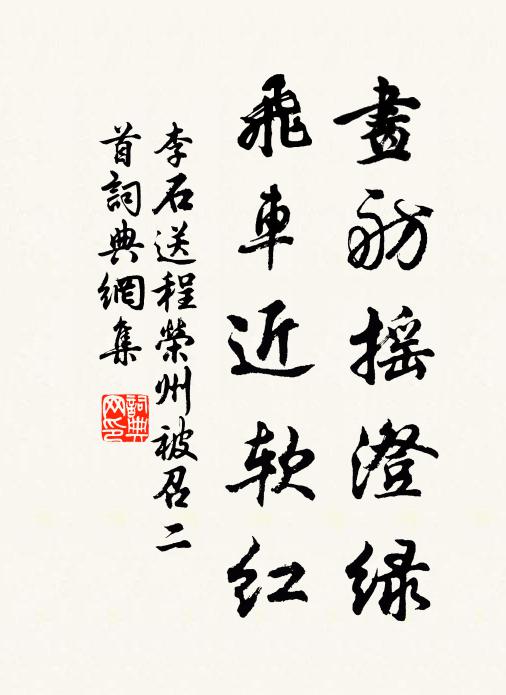 畫舫摇澄綠
飛車近軟紅
李石送程榮州被召二
首詞典網集
詞典网印